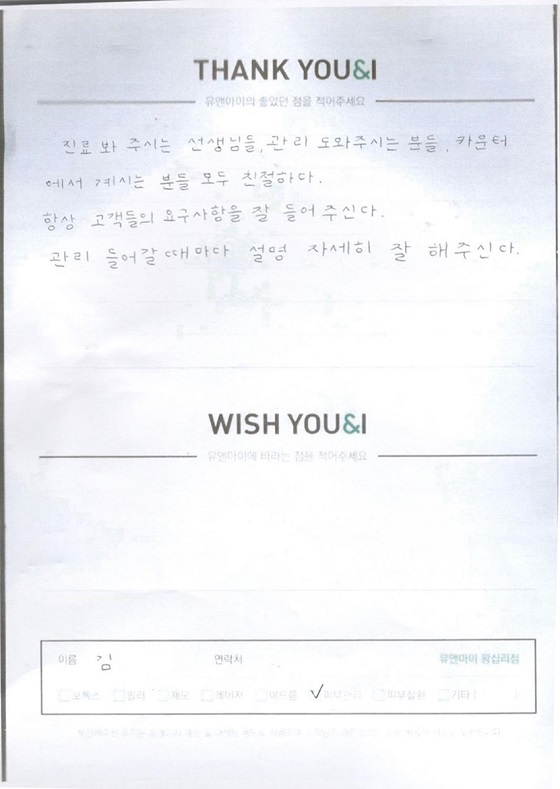 THANK YOU&I
유앤아이의 좋았던 점을 적어주세요
진료 봐 주시는 선생님들, 관리 도와주시는 분들, 카운터
에서 계시는 분들 모두 친절하다.
항상 고객들의 요구사항을 잘 들어 주신다.
관리 들어갈 때마다 설명 자세히 잘 해주신다.
WISH YOU&I
유앤아이에 바라는 점을 적어주세요
이름 김 연락처 유앤아이 왕십리점
보톡스 필러 제모 레이저 여드름 ✓ 피부관리 피부질환 기타 ( )